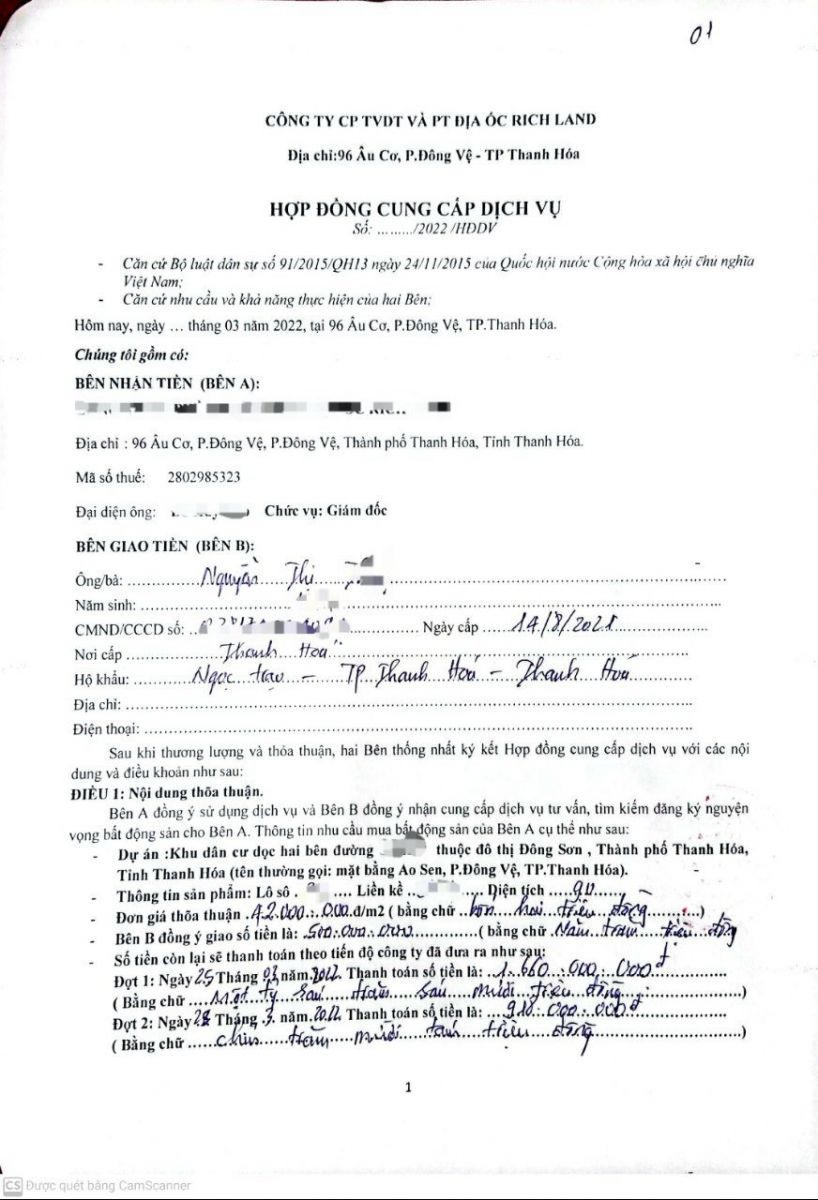 01
CÔNG TY CP TVDT VÀ PT ĐỊA ỐC RICH LAND
Địa chỉ:96 Âu Cơ, P.Đông Vệ - TP Thanh Hóa
HỢP ĐỒNG CUNG CẤP DỊCH VỤ
Số: ......../2022 /HĐDV
- Căn cứ Bộ luật dân sự số 91/2015/QH13 ngày 24/11/2015 của Quốc hội nước Cộng hòa xã hội chủ nghĩa
Việt Nam;
- Căn cứ nhu cầu và khả năng thực hiện của hai Bên;
Hôm nay, ngày ... tháng 03 năm 2022, tại 96 Âu Cơ, P.Đông Vệ, TP.Thanh Hóa.
Chúng tôi gồm có:
BÊN NHẬN TIỀN (BÊN A):
Địa chỉ : 96 Âu Cơ, P.Đông Vệ, P.Đông Vệ, Thành phố Thanh Hóa, Tỉnh Thanh Hóa.
Mã số thuế: 2802985323
Đại diện ông: Chức vụ: Giám đốc
BÊN GIAO TIỀN (BÊN B):
Ông/bà: Nguyễn Thị
Năm sinh:
CMND/CCCD số: Ngày cấp 14/8/2021
Nơi cấp Thanh Hoá
Hộ khẩu: Ngọc Trạo - TP Thanh Hoá - Thanh Hoá
Địa chỉ:
Điện thoại:
Sau khi thương lượng và thỏa thuận, hai Bên thống nhất ký kết Hợp đồng cung cấp dịch vụ với các nội
dung và điều khoản như sau:
ĐIỀU 1: Nội dung thõa thuận.
Bên A đồng ý sử dụng dịch vụ và Bên B đồng ý nhận cung cấp dịch vụ tư vấn, tìm kiếm đăng ký nguyện
vọng bất động sản cho Bên A. Thông tin nhu cầu mua bất động sản của Bên A cụ thể như sau:
- Dự án :Khu dân cư dọc hai bên đường thuộc đô thị Đông Sơn , Thành phố Thanh Hóa,
Tỉnh Thanh Hóa (tên thường gọi: mặt bằng Ao Sen, P.Đông Vệ, TP.Thanh Hóa).
- Thông tin sản phẩm: Lô số .... Liền kề .... Diện tích 90
- Đơn giá thõa thuận 42.000.000.đ/m2 ( bằng chữ bốn hai triệu đồng )
- Bên B đồng ý giao số tiền là: 500.000.000 ( bằng chữ Năm trăm triệu đồng
- Số tiền còn lại sẽ thanh toán theo tiến độ công ty đã đưa ra như sau:
Đợt 1: Ngày 25 Tháng 03 năm 2022 Thanh toán số tiền là: 1.660.000.000đ
( Bằng chữ Một tỷ sáu trăm sáu mươi triệu đồng )
Đợt 2: Ngày 28 Tháng 3 năm 2022 Thanh toán số tiền là: 918.000.000đ
( Bằng chữ chín trăm mười tám triệu đồng )
1
CS Được quét bằng CamScanner